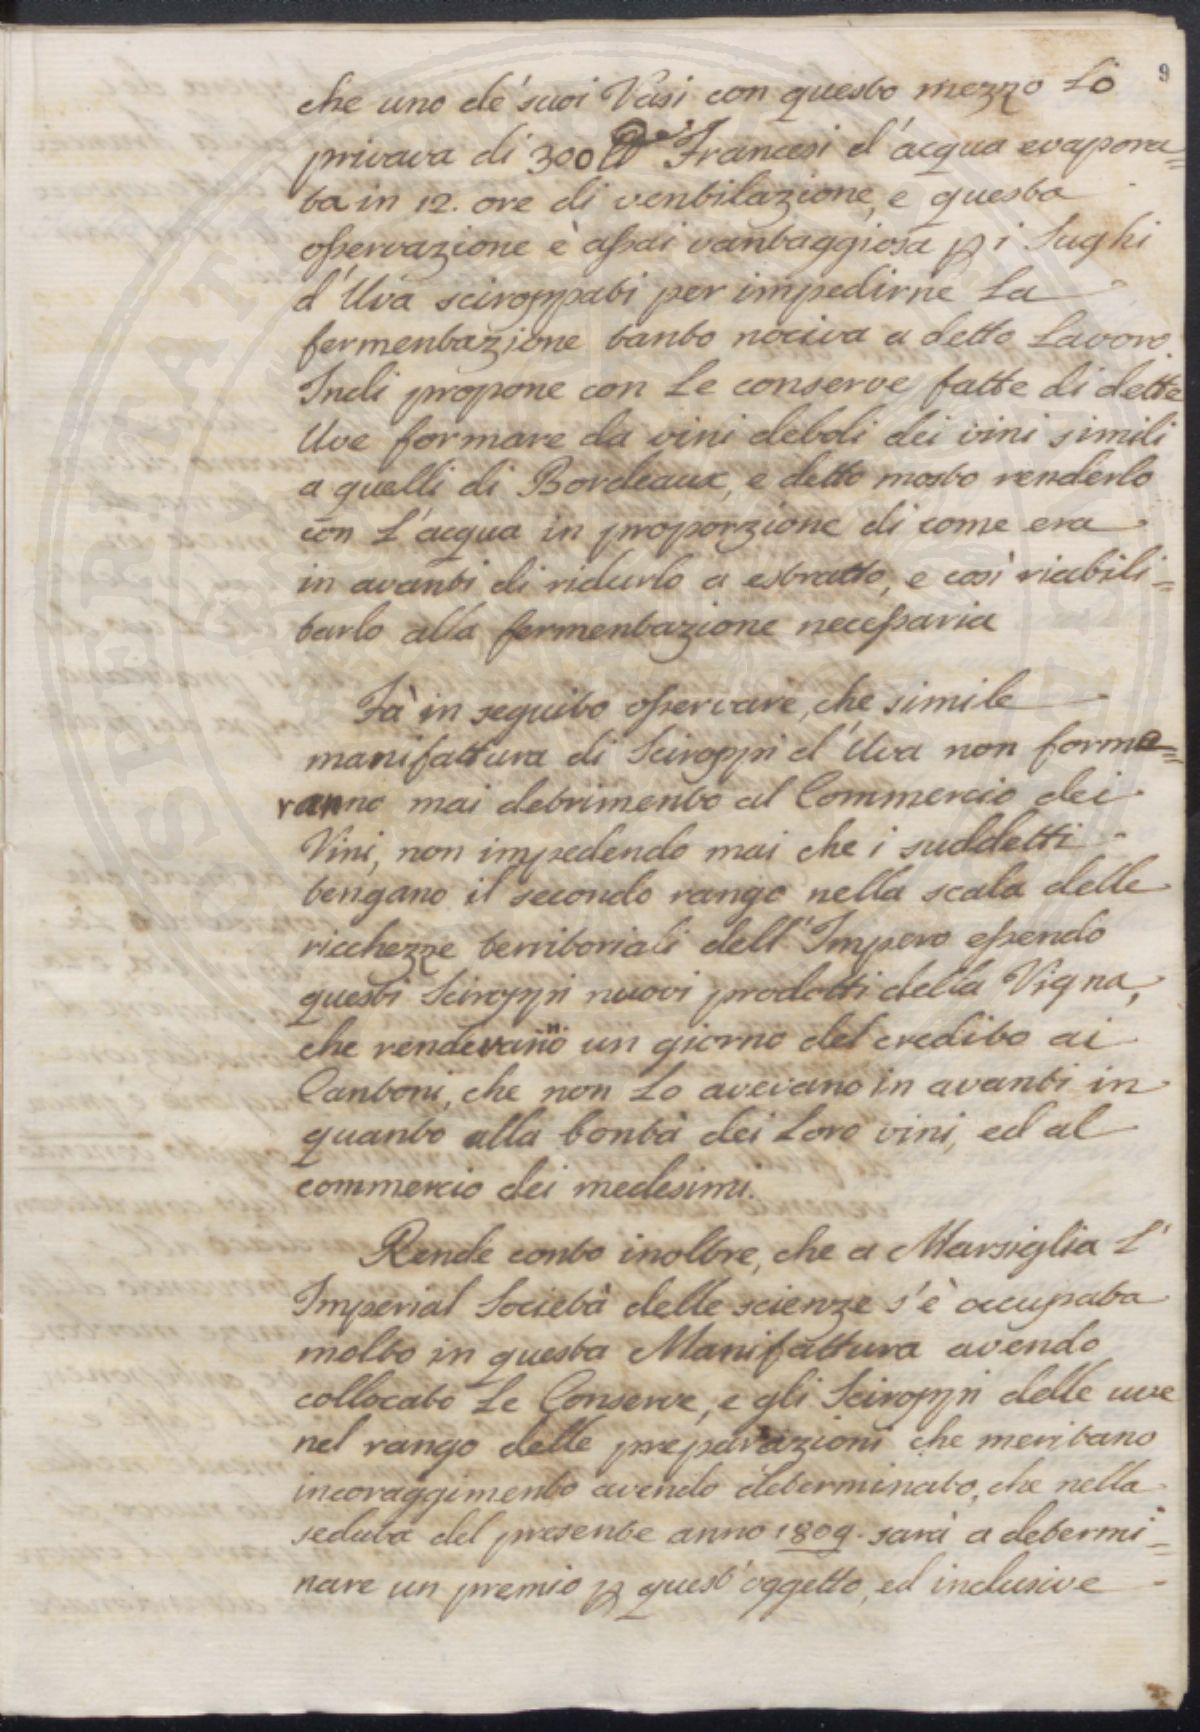 9
che uno de' suoi Vasi con questo mezzo Lo
privava di 300 ℔ Francesi d'acqua evapora=
ta in 12. ore di ventilazione, e questa
osservazione è assai vantaggiosa p i Sughi
d'Uva sciroppati per impedirne La
fermentazione tanto nociva a detto Lavoro
Indi propone con Le conserve fatte di dette
Uve formare da vini deboli dei vini simili
a quelli di Bordeaux, e detto mosto renderlo
con L'acqua in proporzione di come era
in avanti di ridurlo a estratto, e così riabili=
tarlo alla fermentazione necessaria
Fà in seguito osservare, che simile
manifattura di Sciroppi d'Uva non forma=
ranno mai detrimento al Commercio dei
Vini, non impedendo mai che i suddetti
tengano il secondo rango nella scala delle
ricchezze territoriali dell'Impero essendo
questi Sciroppi nuovi prodotti della Vigna,
che renderanno un giorno del credito ai
Cantoni, che non Lo avevano in avanti in
quanto alla bontà dei Loro vini, ed al
commercio dei medesimi.
Rende conto inoltre, che a Marsiglia L'
Imperial Società delle scienze s'è occupata
molto in questa Manifattura avendo
collocato Le Conserve, e gli Sciroppi delle uve
nel rango delle preparazioni che meritano
incoraggimento avendo determinato, che nella
seduta del presente anno 1809. sarà a determi=
nare un premio p quest'oggetto, ed inclusive